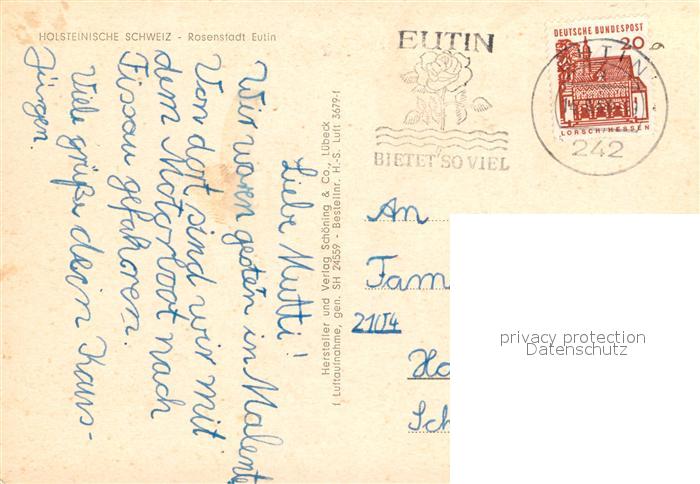 HOLSTEINISCHE SCHWEIZ - Rosenstadt Eutin
Liebe Mutti!
Wir waren gestern in Malente
Von dort sind wir mit
dem Motorboot nach
Fissau gefahren.
Viele grüße dein Haus-
Jürgen.
Hersteller und Verlag Schöning & Co., Lübeck
( Luftaufnahme, gen. SH 24559 - Bestellnr. H.-S. Luft 3679-1
EUTIN
BIETET SO VIEL
DEUTSCHE BUNDESPOST
20
LORSCH/HESSEN
EUTIN
242
An
Fam
2104
Ha
Sch
privacy protection
Datenschutz